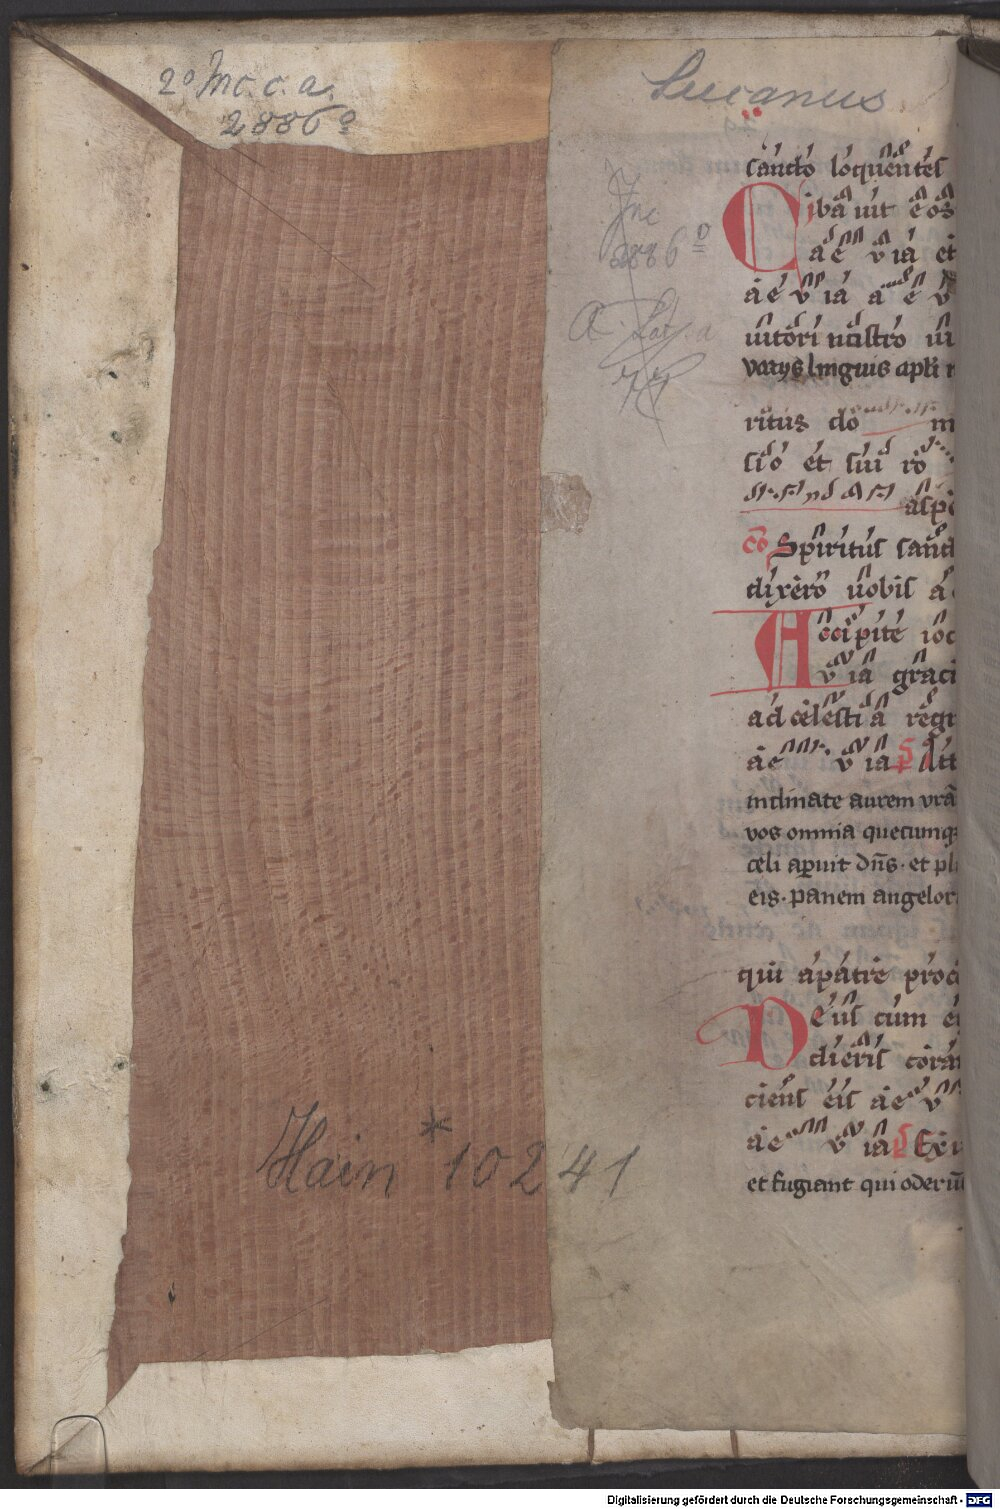 2° Inc. c. a.
2886 a
Lucanus
Inc
2886 D
A. Lat. a
sancto loquentes
Ciba uit eos
a e v ia et
a e v ia a e v
uitori nostro ui
varys linguis apli
ritus do m
sio et sui ro
aspe
co Spiritus sanct
dixero uobis a
Accipite ioc
v ia graci
ad celesti a regn
ae v ia Att
inclinate aurem vrā
vos omnia quecunq
celi apuit dn̄s · et pl
eis · panem angelor
qui a patre proce
Deus cum e
dieris coram
ciens eis ae v
ae v ia Ex
et fugiant qui oderūt
Hain * 10241
Digitalisierung gefördert durch die Deutsche Forschungsgemeinschaft - DFG